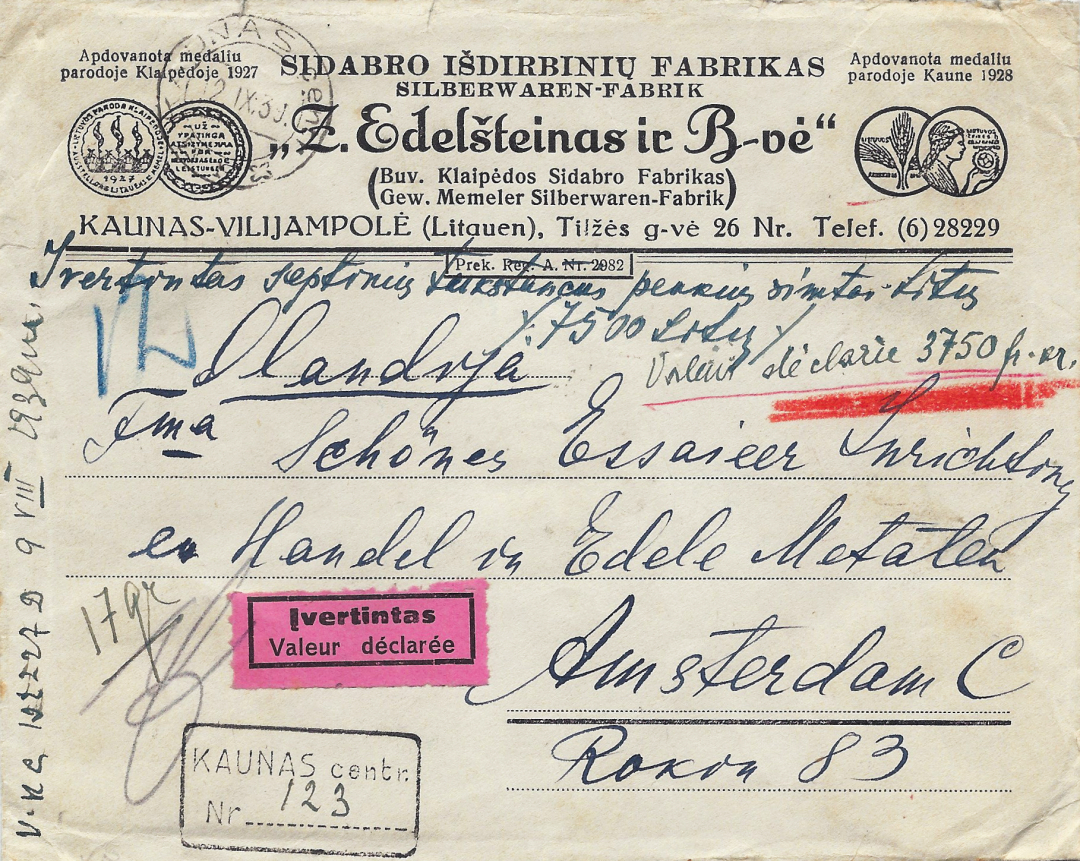 Apdovanota medaliu
parodoje Klaipėdoje 1927
SIDABRO IŠDIRBINIŲ FABRIKAS
SILBERWAREN-FABRIK
„Z. Edelšteinas ir B-vė“
(Buv. Klaipėdos Sidabro Fabrikas)
(Gew. Memeler Silberwaren-Fabrik)
Apdovanota medaliu
parodoje Kaune 1928
1927
KAUNAS-VILIJAMPOLĖ (Litauen), Tilžės g-vė 26 Nr. Telef. (6) 28229
Prek. Reg. A. Nr. 2082
Įvertintas septynius tukstancus penkius simtai Litų
/. 7500 Litų /
Olandija
Valeur déclarée 3750 fr. or.
Fma Schönes Essaieer Inrichting
en Handel in Edele Metalen
17 gr
Įvertintas
Valeur déclarée
Amsterdam C
Rokin 83
KAUNAS centr.
Nr 123
9 VIII 1939